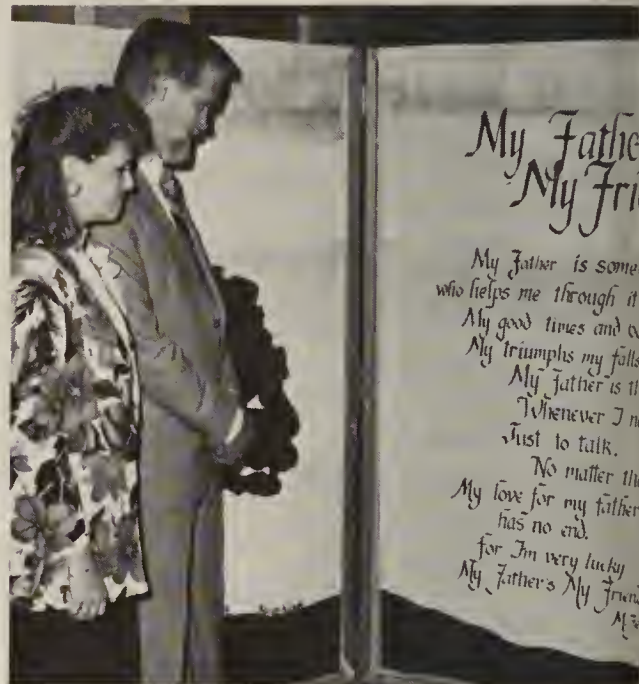 My Fathe
My Fri
My Father is some
who helps me through it
My good times and
My triumphs my falls
My Father is th
Whenever I n
Just to talk.
No matter the
My love for my father
has no end.
for I'm very lucky
My Father's My Friend